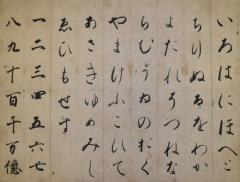 いろはにほへと
ちりぬるをわか
よたれそつねな
らむうゐのおく
やまけふこえて
あさきゆめみし
ゑひもせす
一二三四五六七
八九十百千万億